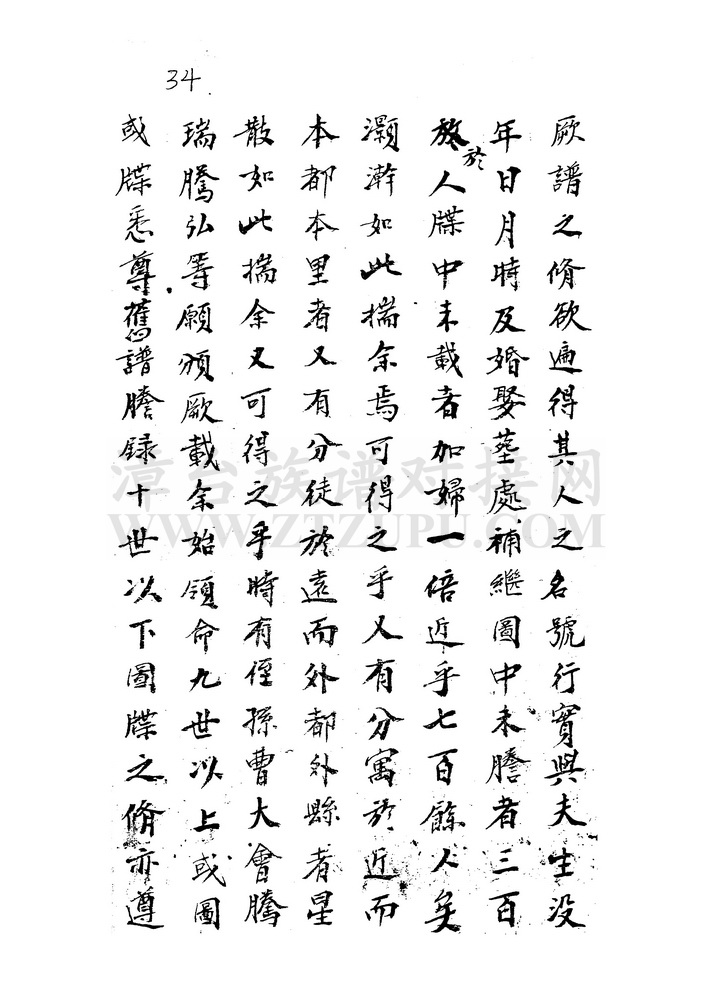 34
厥譜之脩欲遍得其人之名號行實與夫生没
年日月時及婚娶塟處補繼圖中未謄者三百
於
於人牒中未載者加婦一倍近乎七百餘人矣
灝澣如此揣余焉可得之乎又有分寓於近而
本都本里者又有分徒於遠而外都外縣者星
散如此揣余又可得之乎時有侄孫曹大會騰
瑞騰弘等願頒厥載余始領命九世以上或圖
或牒悉尊舊譜謄録十世以下圖牒之脩亦遵
漳台族谱对接网
WWW.ZTZUPU.COM